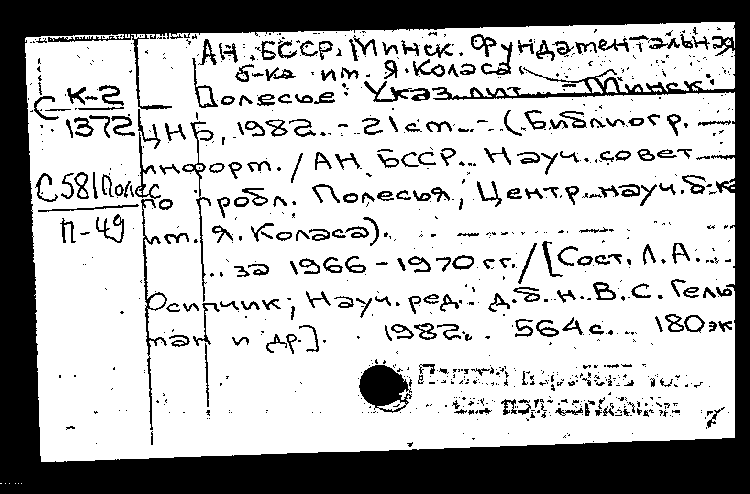 АН БССР. Минск. Фундаментальная
б-ка им. Я.Коласа.
С К-2
1372
Полесье: Указ. лит. – Минск:
ЦНБ, 1982. – 21см. – (Библиогр.
информ./АН БССР. Науч. совет
С581Полес
П-49
по пробл. Полесья, Центр. науч. б-ка
им. Я. Коласа).
... за 1966-1970 гг./[Сост. Л.А.
Осипчик; Науч. ред. д.б.н. В.С. Гельт
ман и др.]. 1982. 564с. 180эк